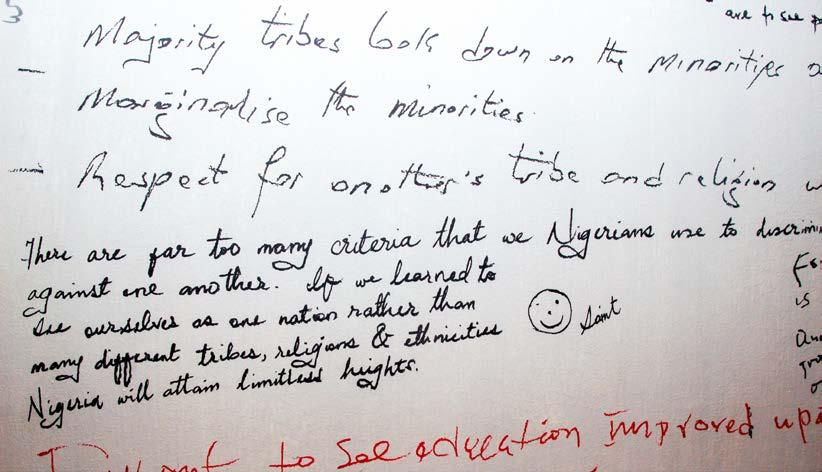 are to see
Majority tribes look down on the minorities
Marginalise the minorities.
- Respect for another's tribe and religion
There are far too many criteria that we Nigerians use to discrimi
against one another. If we learned to
see ourselves as one nation rather than
many different tribes, religions & ethnicities
Nigeria will attain limitless heights.
Saint
is
I want to see education improved